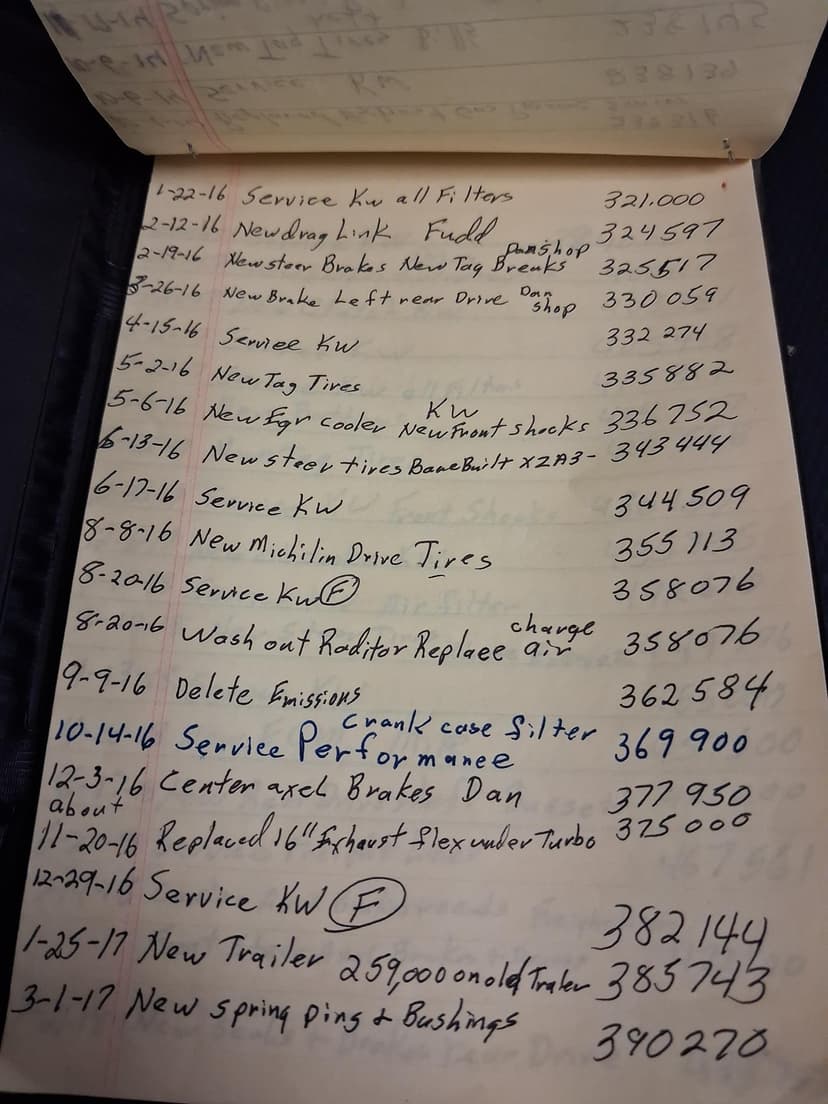 1-22-16 Service Kw all Filters 321.000
2-12-16 New drag Link Fudd 324597
2-19-16 New steer Brakes New Tag Breaks Dan shop 325517
3-26-16 New Brake Left rear Drive Dan shop 330 059
4-15-16 Service KW 332 274
5-2-16 New Tag Tires 335882
5-6-16 New Egr cooler KW New Front shocks 336752
6-13-16 New steer tires BaneBuilt XZA3- 343444
6-17-16 Service KW 344509
8-8-16 New Michilin Drive Tires 355113
8-20-16 Service Kw F 358076
8-20-16 Wash out Raditor Replace charge air 358076
9-9-16 Delete Emissions 362584
10-14-16 Service Performanee crank case filter 369900
12-3-16 Center axel Brakes Dan 377950
about
11-20-16 Replaced 16" Exhaust flex under Turbo 375000
12-29-16 Service KW F 382144
1-25-17 New Trailer 259,000 on old Traler 385743
3-1-17 New spring ping & Bushings 390270